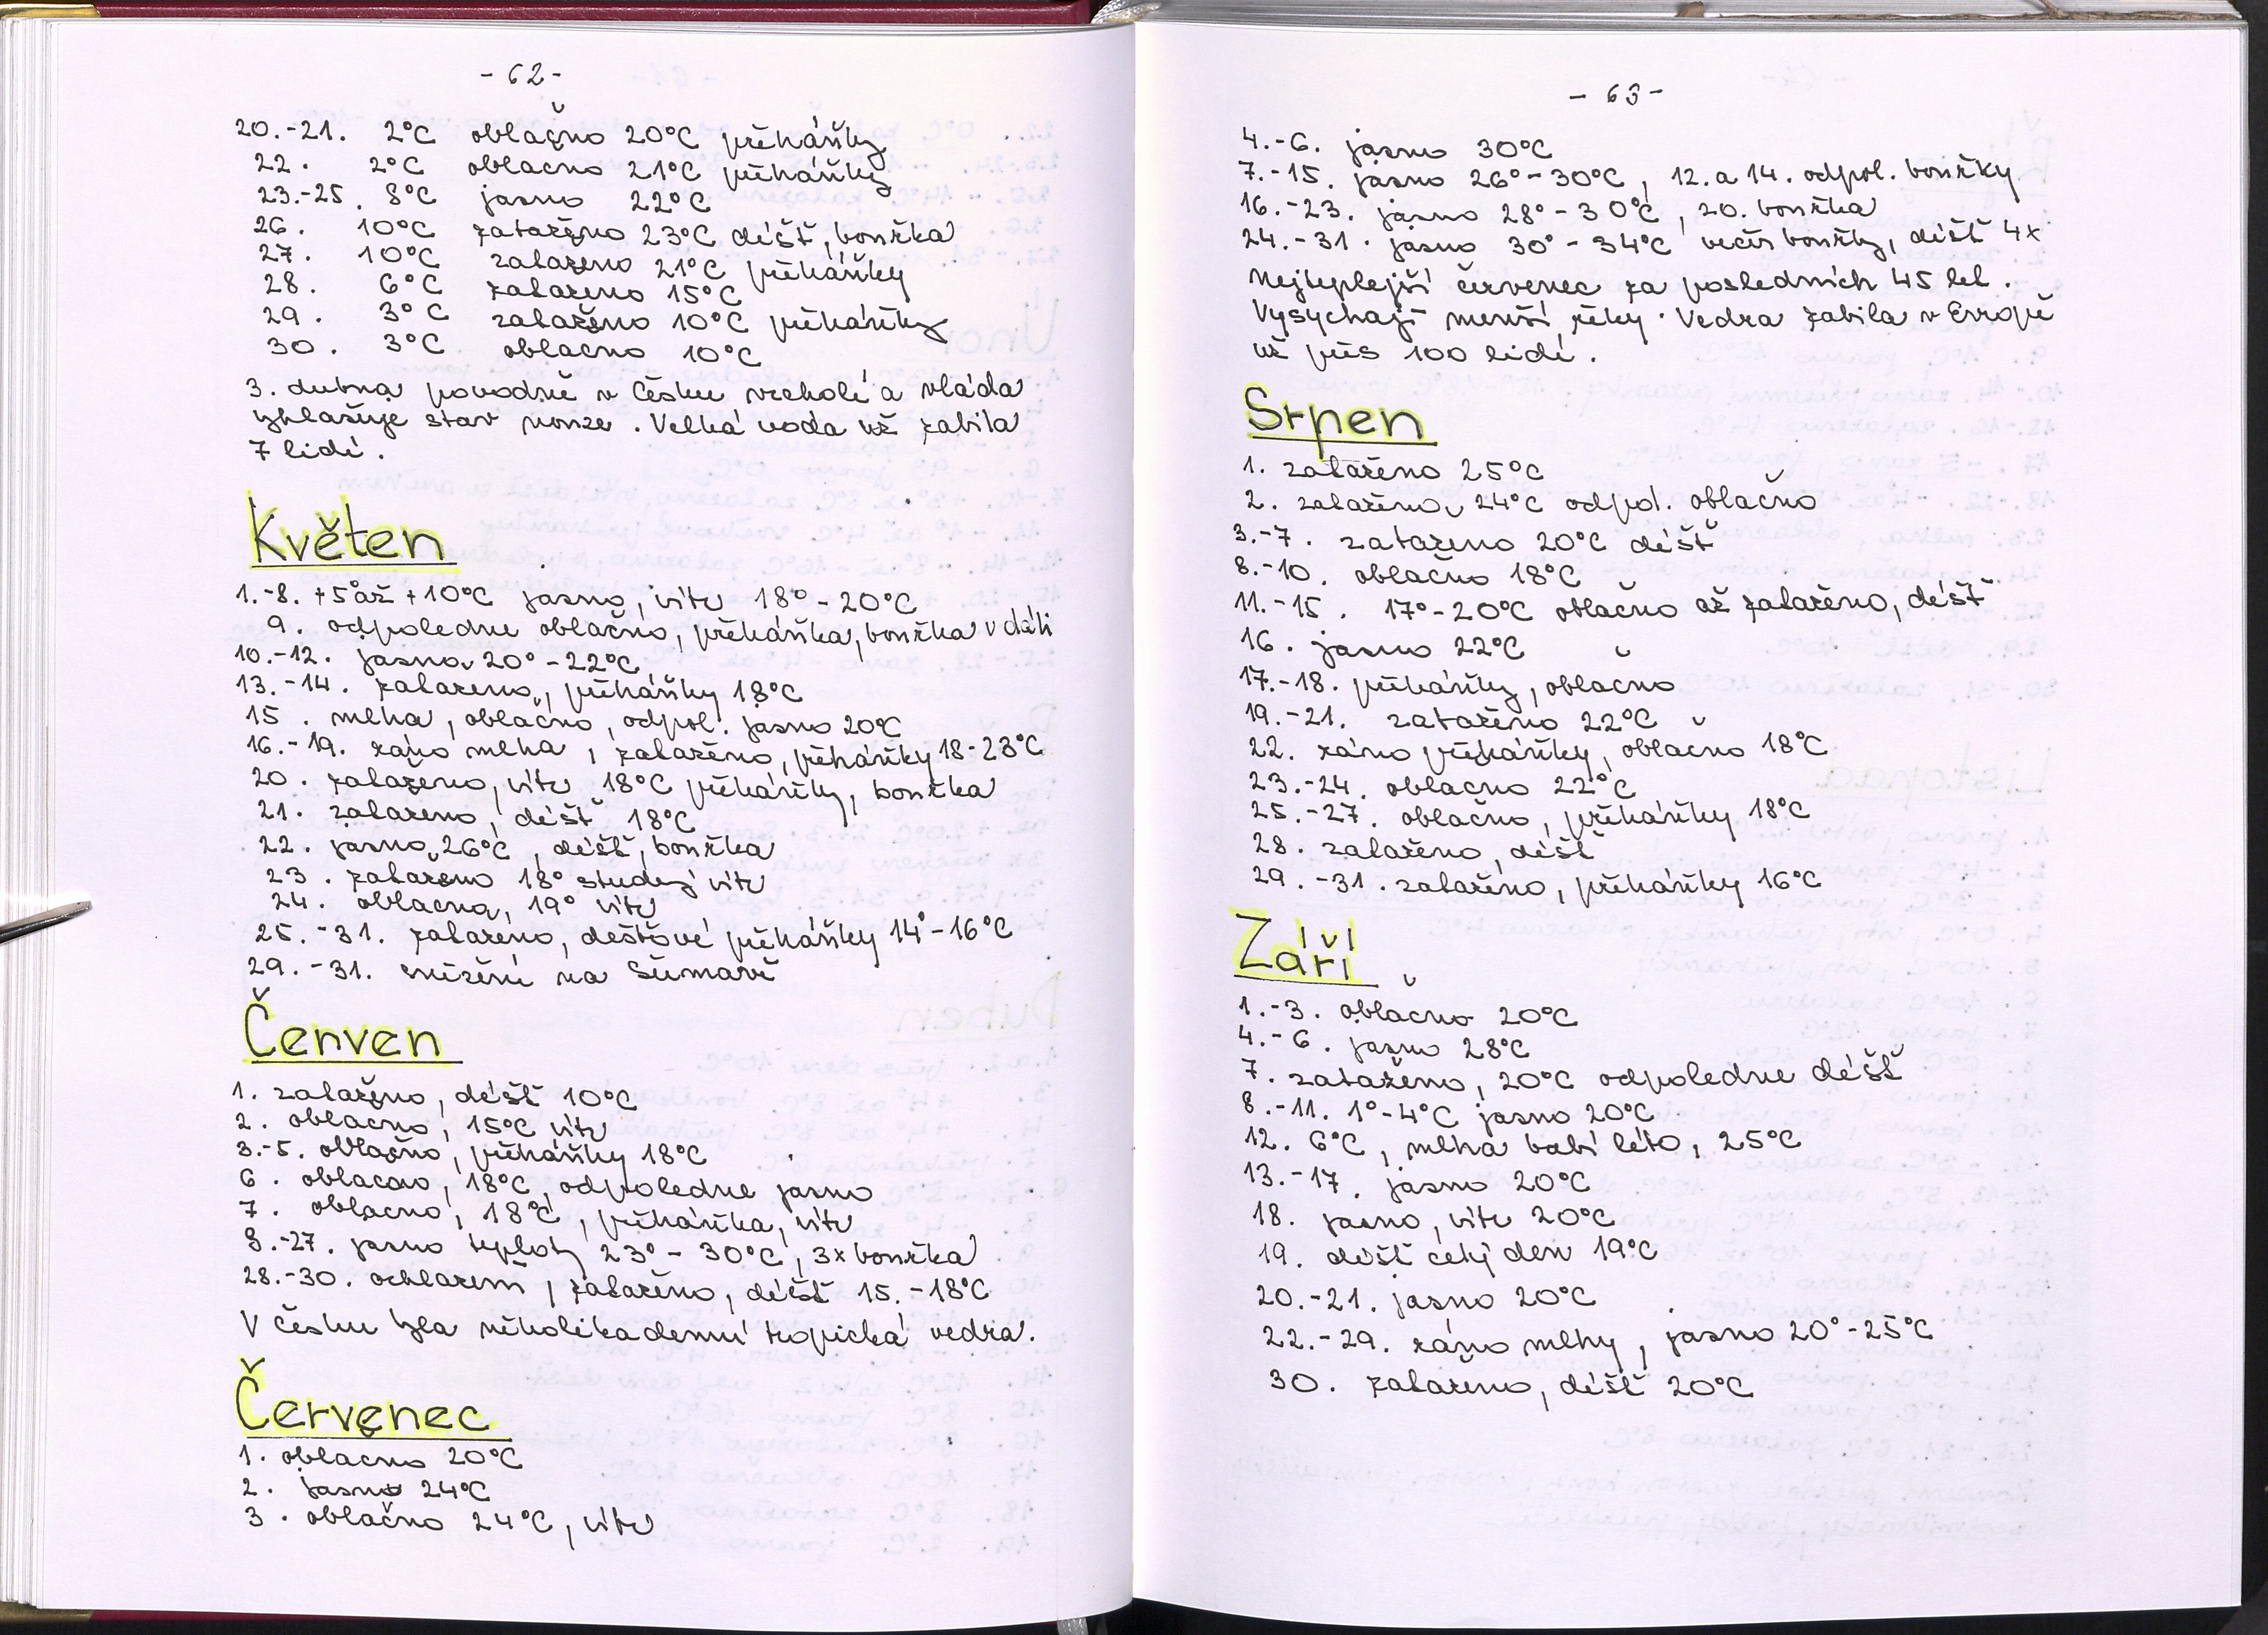 - 62 -
20.-21. 2°C oblačno 20°C přeháňky
22. 2°C oblačno 21°C přeháňky
23.-25. 8°C jasno 22°C
26. 10°C zataženo 23°C déšť, bouřka
27. 10°C zataženo 21°C přeháňky
28. 6°C zataženo 15°C
29. 3°C zataženo 10°C přeháňky
30. 3°C oblačno 10°C
3. dubna povodně v Česku vrcholí a vláda
vyhlašuje stav nouze. Velká voda už zabila
7 lidí.
Květen
1.-8. +5 až +10°C jasno, vítr 18° - 20°C
9. odpoledne oblačno, přeháňka, bouřka v dáli
10.-12. jasno 20° - 22°C
13.-14. zataženo, přeháňky 18°C
15. mlha, oblačno, odpol. jasno 20°C
16.-19. ráno mlha, zataženo, přeháňky 18-23°C
20. zataženo, vítr 18°C přeháňky, bouřka
21. zataženo, déšť 18°C
22. jasno, 26°C, déšť, bouřka
23. zataženo 18° studený vítr
24. oblačno, 19° vítr
25.-31. zataženo, dešťové přeháňky 14° - 16°C
29.-31. sněžení na Šumavě
Červen
1. zataženo, déšť 10°C
2. oblačno, 15°C vítr
3.-5. oblačno, přeháňky 18°C
6. oblačno, 18°C, odpoledne jasno
7. oblačno, 18°C, přeháňka, vítr
8.-27. jasno teploty 23° - 30°C, 3x bouřka
28.-30. ochlazení, zataženo, déšť 15. - 18°C
V Česku byla několikadenní tropická vedra.
Červenec
1. oblačno 20°C
2. jasno 24°C
3. oblačno 24°C, vítr
- 63 -
4.-6. jasno 30°C
7.-15. jasno 26° - 30°C, 12. a 14. odpol. bouřky
16.-23. jasno 28° - 30°C, 20. bouřka
24.-31. jasno 30° - 34°C večer bouřky, déšť 4x
Nejteplejší červenec za posledních 45 let.
Vysychají menší řeky. Vedra zabila v Evropě
už přes 100 lidí.
Srpen
1. zataženo 25°C
2. zataženo, 24°C odpol. oblačno
3.-7. zataženo 20°C déšť
8.-10. oblačno 18°C
11.-15. 17° - 20°C oblačno až zataženo, déšť
16. jasno 22°C
17.-18. přeháňky, oblačno
19.-21. zataženo 22°C
22. ráno přeháňky, oblačno 18°C
23.-24. oblačno 22°C
25.-27. oblačno, přeháňky 18°C
28. zataženo, déšť
29.-31. zataženo, přeháňky 16°C
Září
1.-3. oblačno 20°C
4.-6. jasno 28°C
7. zataženo, 20°C odpoledne déšť
8.-11. 1° - 4°C jasno 20°C
12. 6°C, mlha babí léto, 25°C
13.-17. jasno 20°C
18. jasno, vítr 20°C
19. déšť celý den 19°C
20.-21. jasno 20°C
22.-29. ráno mlhy, jasno 20° - 25°C
30. zataženo, déšť 20°C